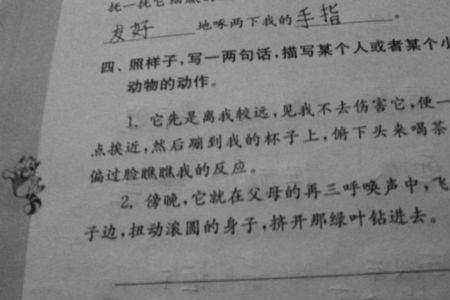 托一托它细腻的
友好 地啄两下我的 手指 。
四、照样子,写一两句话,描写某个人或者某个小
动物的动作。
1. 它先是离我较远,见我不去伤害它,便一
点挨近,然后蹦到我的杯子上,俯下头来喝茶
偏过脸瞧瞧我的反应。
2. 傍晚,它就在父母的再三呼唤声中,飞
子边,扭动滚圆的身子,挤开那绿叶钻进去。